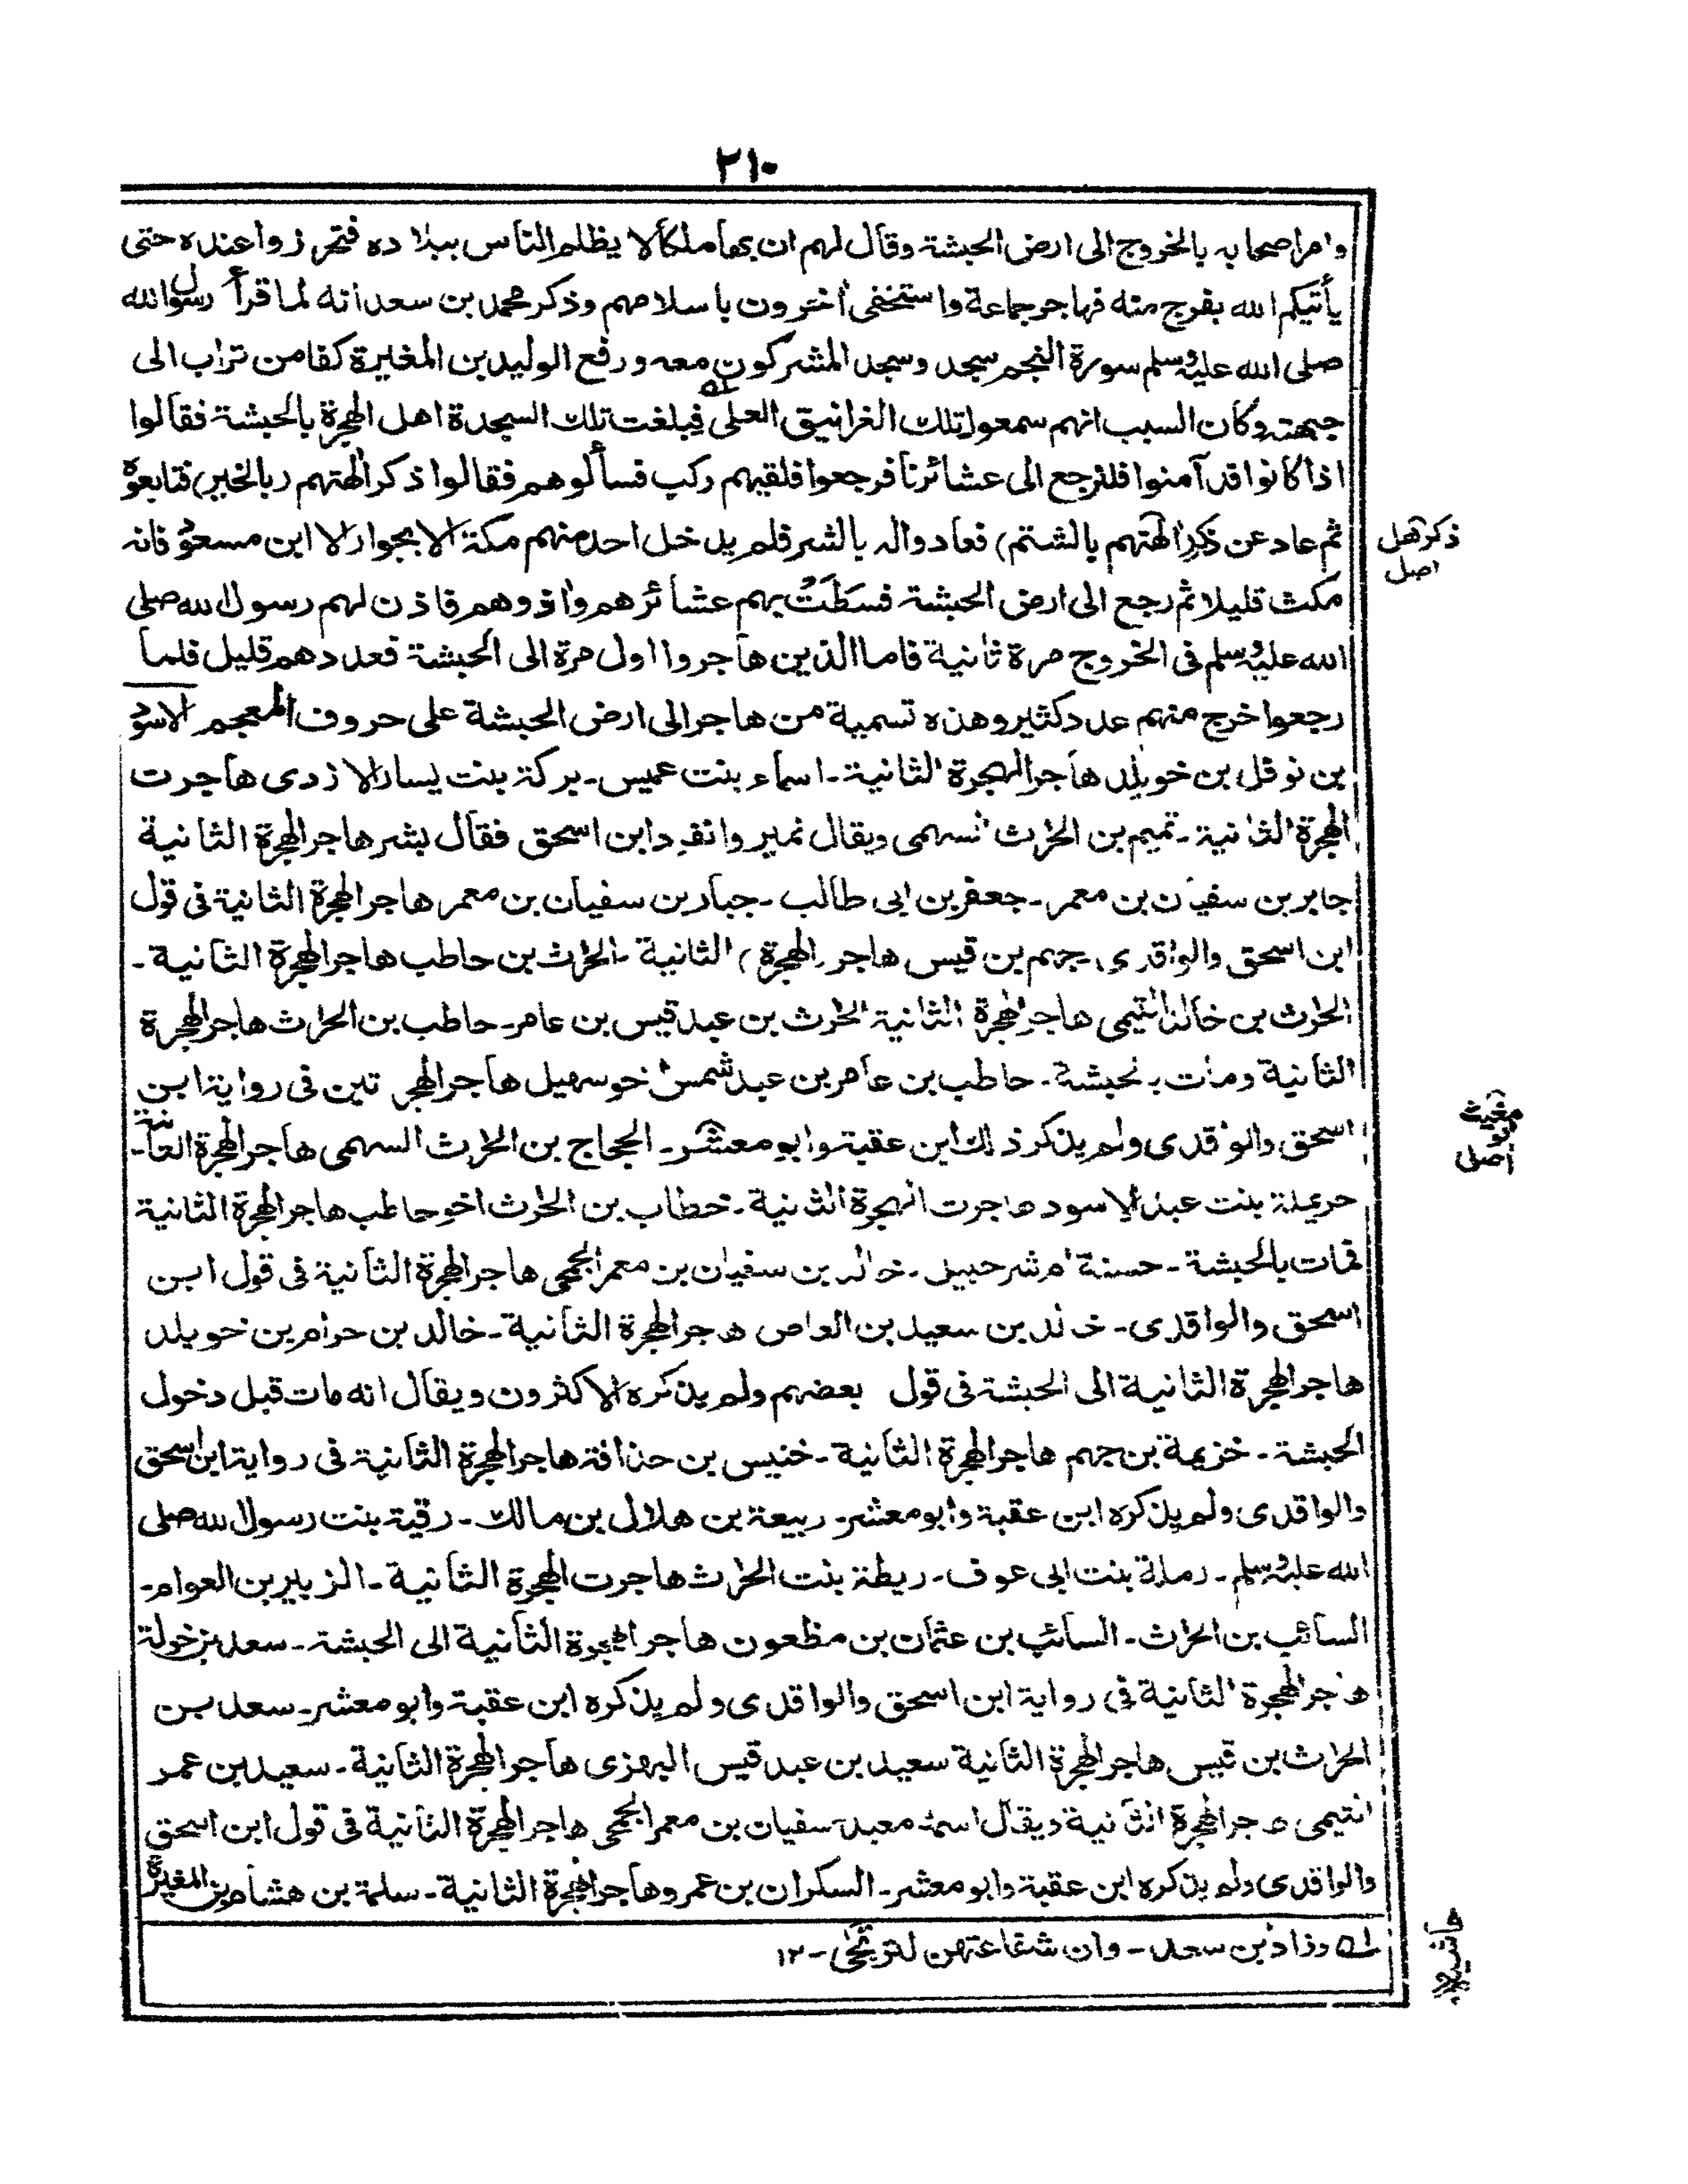 ٢١٠
وامر اصحابه بالخروج الى ارض الحبشة وقال لهم ان بها ملكا لا يظلم الناس ببلاده فتحرزوا عنده حتى
يأتيكم الله بفرج منه فهاجر جماعة واستخفى أخرون باسلامهم وذكر محمد بن سعد أنه لما قرأ رسول الله
صلى الله عليه وسلم سورة النجم سجد وسجد المشركون معه ورفع الوليد بن المغيرة كفا من تراب الى
جبهته وكان السبب انهم سمعوا تلك الغرانيق العلى فبلغت تلك السجدة اهل الهجرة بالحبشة فقالوا
اذا كانوا قد آمنوا فلنرجع الى عشائرنا فرجعوا فلقيهم ركب فسألوهم فقالوا ذكر الهتهم (بالخير) فتابعوه
ثم عاد عن ذكر الهتهم بالشتم) فعادوا له بالشر فلم يدخل احد منهم مكة الا بجوار الا ابن مسعود فانه
ذكر هل
اصل
مكث قليلا ثم رجع الى ارض الحبشة فسطت بهم عشائرهم واذوهم فاذن لهم رسول الله صلى
الله عليه وسلم فى الخروج مرة ثانية فاما الذين هاجروا اول مرة الى الحبشة فعددهم قليل فلما
رجعوا خرج منهم عدد كثير وهذه تسمية من هاجر الى ارض الحبشة على حروف المعجم الاسود
بن نوفل بن خويلد هاجر الهجرة الثانية - اسماء بنت عميس - بركة بنت يسار الازدى هاجرت
الهجرة الثانية - تميم بن الحٰرث السهمى ويقال نمير وانفرد ابن اسحق فقال بشر هاجر الهجرة الثانية
جابر بن سفيان بن معمر - جعفر بن ابى طالب - جبار بن سفيان بن معمر هاجر الهجرة الثانية فى قول
ابن اسحق والواقدى - جهم بن قيس هاجر (الهجرة) الثانية - الحٰرث بن حاطب هاجر الهجرة الثانية -
الحٰرث بن خالد التيمى هاجر الهجرة الثانية الحٰرث بن عبد قيس بن عامر - حاطب بن الحٰرث هاجر الهجرة
الثانية ومات بالحبشة - حاطب بن عامر بن عبد شمس اخو سهيل هاجر الهجرتين فى رواية ابن
اسحق والواقدى ولم يذكر ذلك ابن عقبة وابو معشر - الحجاج بن الحٰرث السهمى هاجر الهجرة الثانية -
اصل
حريملة بنت عبد الاسود هاجرت الهجرة الثانية - خطاب بن الحٰرث اخو حاطب هاجر الهجرة الثانية
فمات بالحبشة - حسنة ام شرحبيل - خالد بن سفيان بن معمر الجمحى هاجر الهجرة الثانية فى قول ابن
اسحق والواقدى - خالد بن سعيد بن العاص هاجر الهجرة الثانية - خالد بن حرام بن خويلد
هاجر الهجرة الثانية الى الحبشة فى قول بعضهم ولم يذكره الاكثرون ويقال انه مات قبل دخول
الحبشة - خزيمة بن جهم هاجر الهجرة الثانية - خنيس بن حذافة هاجر الهجرة الثانية فى رواية ابن اسحق
والواقدى ولم يذكره ابن عقبة وابو معشر - ربيعة بن هلال بن مالك - رقية بنت رسول الله صلى
الله عليه وسلم - رملة بنت ابى عوف - ريطة بنت الحٰرث هاجرت الهجرة الثانية - الزبير بن العوام -
السائب بن الحٰرث - السائب بن عثمان بن مظعون هاجر الهجرة الثانية الى الحبشة - سعد بن خولة
هاجر الهجرة الثانية فى رواية ابن اسحق والواقدى ولم يذكره ابن عقبة وابو معشر - سعد بن
الحٰرث بن قيس هاجر الهجرة الثانية سعيد بن عبد قيس البهزى هاجر الهجرة الثانية - سعيد بن عمر
التيمى هاجر الهجرة الثانية ويقال اسمه معبد - سفيان بن معمر الجمحى هاجر الهجرة الثانية فى قول ابن اسحق
والواقدى ولم يذكره ابن عقبة وابو معشر - السكران بن عمرو هاجر الهجرة الثانية - سلمة بن هشام بن المغيرة
ــه وزاد بن سعد - وان شفاعتهن لترتجى - ١٢
حاشية